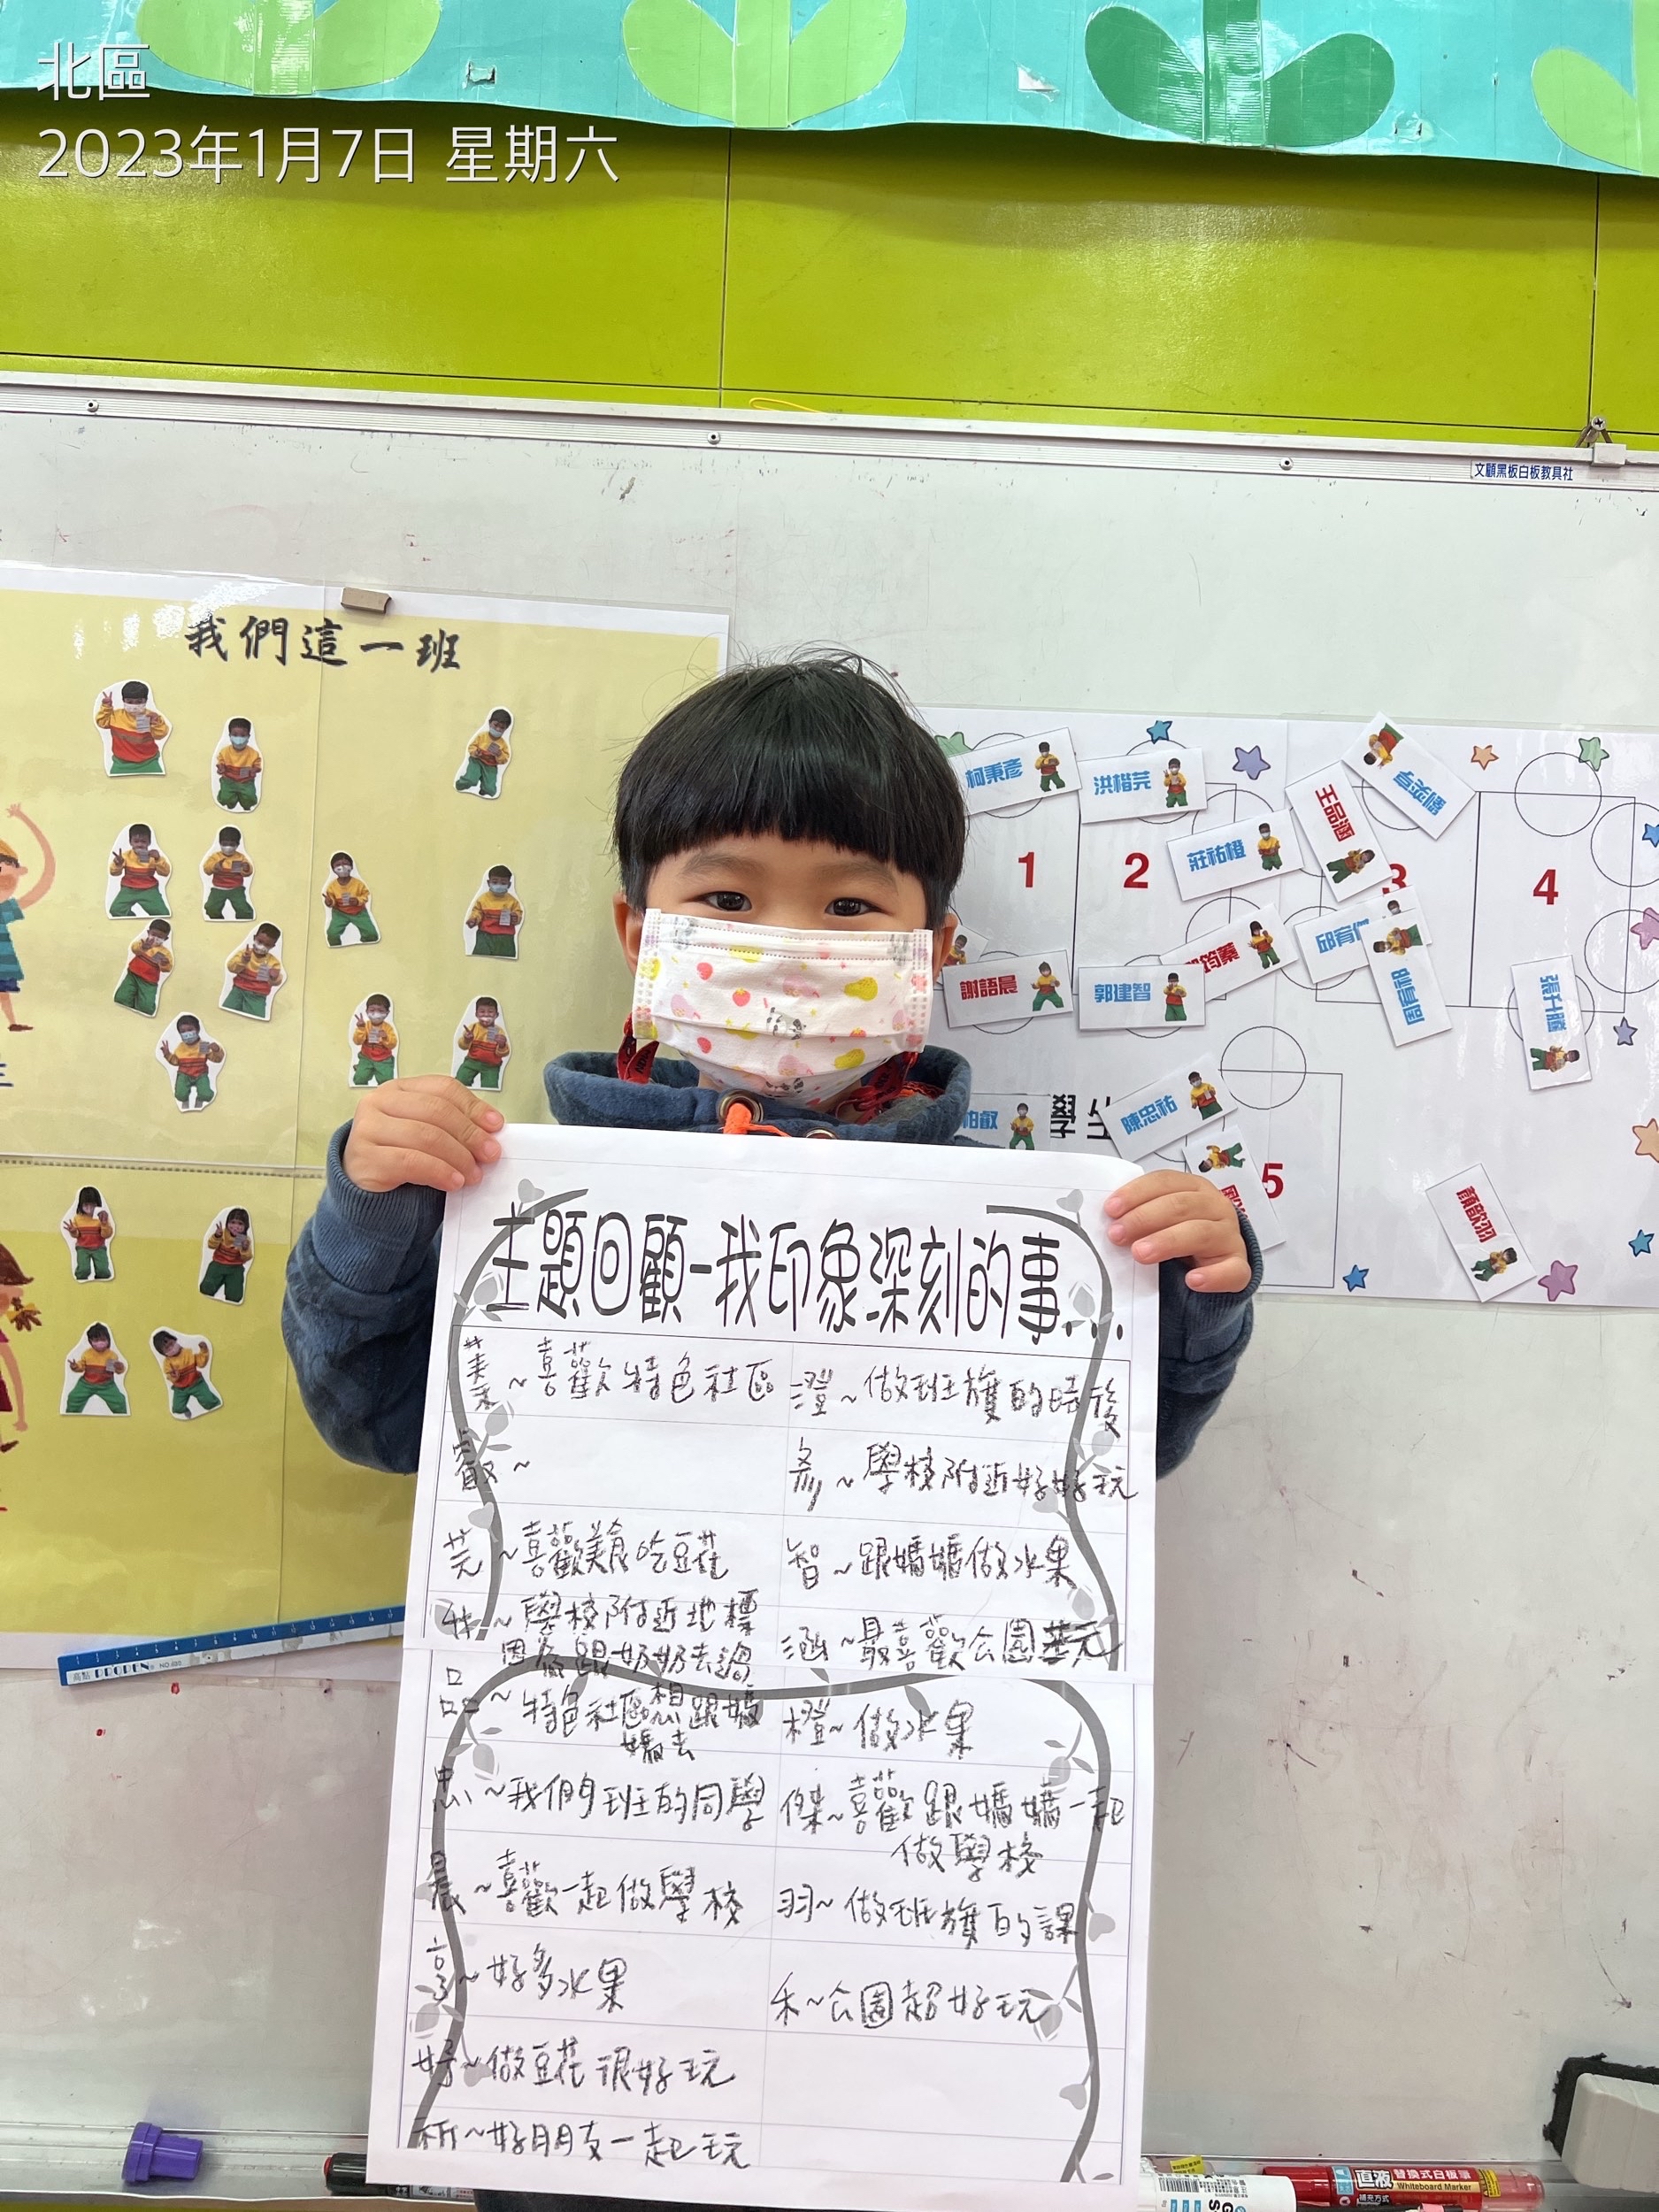 北區
2023年1月7日 星期六
文顧黑板白板教具社
我們這一班
柯秉彥
洪楷芫
莊祐橙
王品涵
劉奕亨
1
2
3
4
謝語晨
郭建智
筠蓁
張升騰
柏叡
學生
陳忠祐
5
顏歆羽
主題回顧-我印象深刻的事...
蓁~喜歡特色社區
澄~做班旗的時後
叡~
彥~學校附近好好玩
芫~喜歡美食吃豆花
智~跟媽媽做水果
升~學校附近地標
因為跟奶奶去過
涵~最喜歡公園
品~特色社區想跟媽
媽去
橙~做水果
忠~我們班的同學
傑~喜歡跟媽媽一起
做學校
晨~喜歡一起做學校
羽~做班旗的課
亨~好多水果
禾~公園超好玩
好~做豆花很好玩
析~好朋友一起玩
直液
替換式白板筆
Whiteboard Marker
補充方式